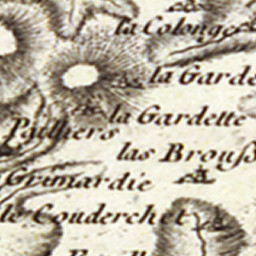 la Colonge
la Garde
la Gardette
Pailliers
las Brouſſ
Grimardie
le Couderchet